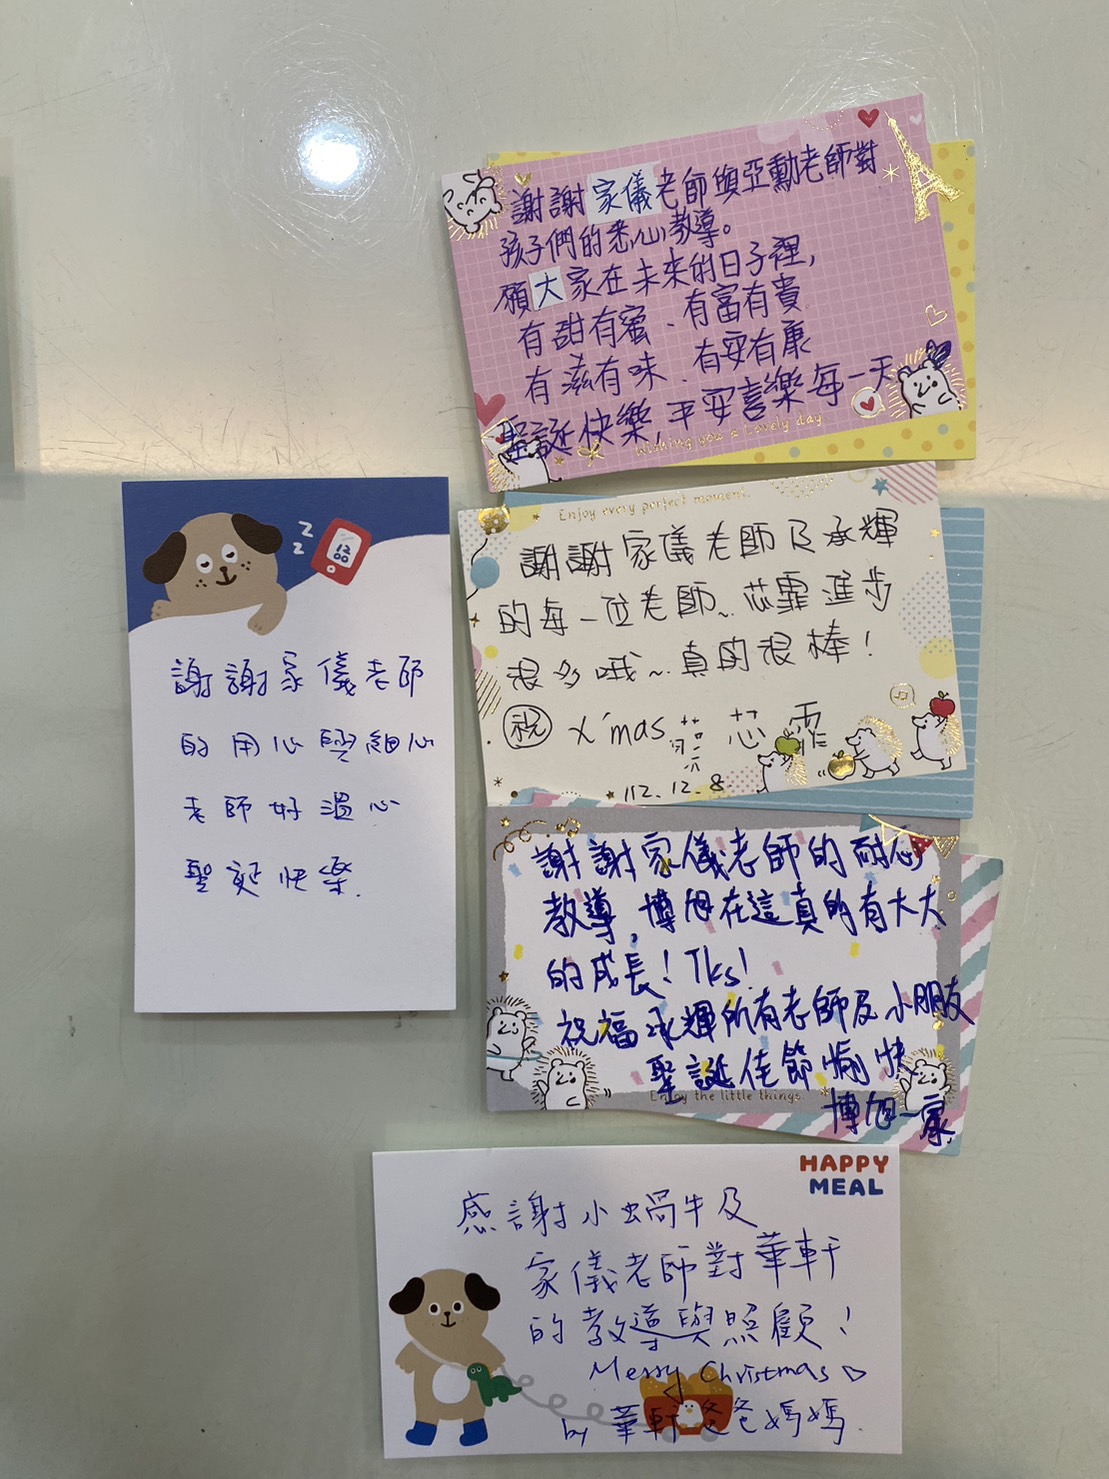 謝謝家儀老師與亞勳老師對
孩子們的悉心教導。
願大家在未來的日子裡,
有甜有蜜、有富有貴
有滋有味、有安有康
聖誕快樂,平安喜樂每一天
Wishing you a lovely day
Enjoy every perfect moment.
謝謝家儀老師及承輝
的每一位老師~芯霏進步
很多哦~真的很棒!
祝 X'mas 芯霏
112.12.8
zz
12
00
謝謝家儀老師
的用心與細心
老師好溫心
聖誕快樂.
謝謝家儀老師的耐心
教導,博旭在這真的有大大
的成長!Tks!
祝福承輝所有老師及小朋友
聖誕佳節愉快
Enjoy the little things
博旭一家
HAPPY
MEAL
感謝小蝸牛及
家儀老師對華軒
的教導與照顧!
Merry Christmas
by 華軒爸爸媽媽.